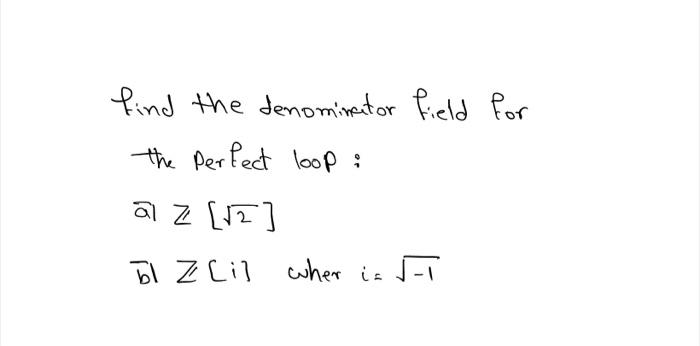 find the denominator field for
the perfect loop :
a) ℤ [√2]
b) ℤ [i] wher i = √-1